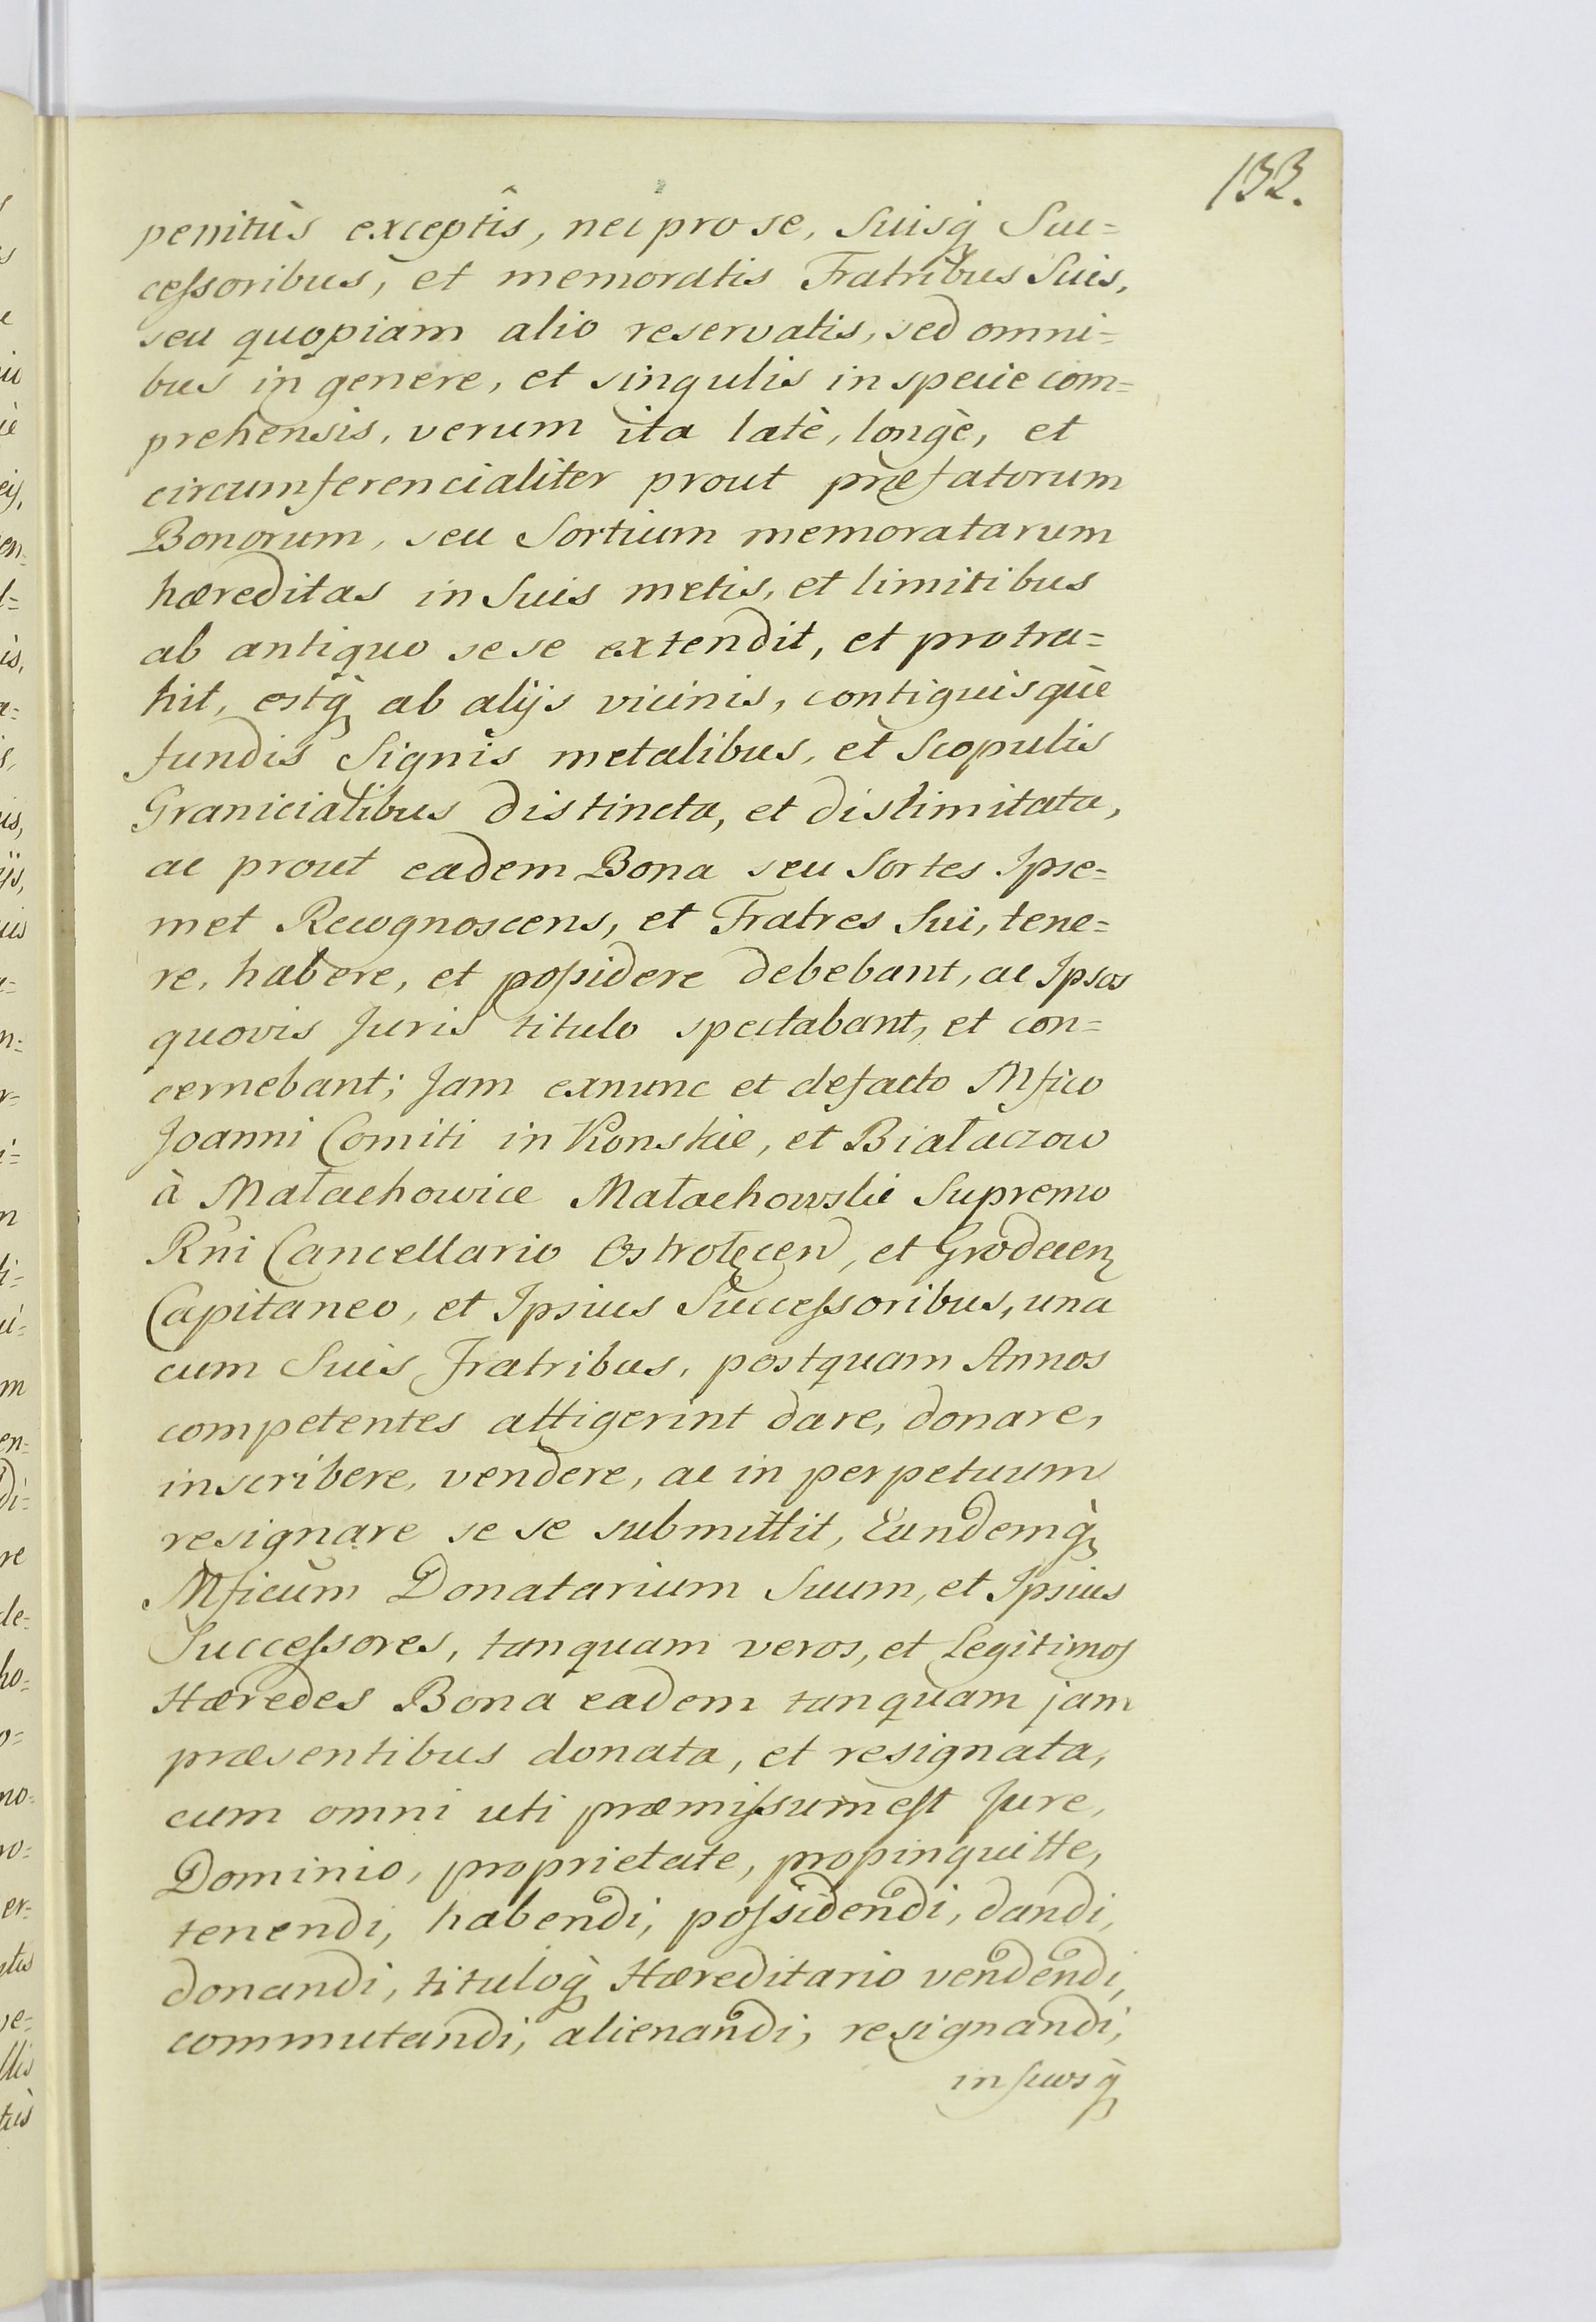 133.
penitùs exceptîs, nec pro se, Suisq̀ Suc=
ceſsoribus, et memoratis Fratribus Suis,
seu quopiam alio reservatis, sed omni=
bus in genere, et singulis in specie com=
prehensis, verum ita latè, longè, et
circumferencialiter prout præfatorum
Bonorum, seu Sortium memoratarum
hæreditas in Suis metis, et limitibus
ab antiquo sese extendit, et protra=
hit, estq̀ ab alijs vicinis, contiguisquè
fundis Signis metalibus, et Scopulis
Granicialibus distincta, et dislimitata,
ac prout eadem Bona seu Sortes Ipse=
met Recognoscens, et Fratres Sui, tene=
re, habere, et poſsidere debebant, ac Ipsos
quovis Juris titulo spectabant, et con=
cernebant; Jam exnunc et defacto Mfico
Joanni Comiti in Konskie, et Białaczow
à Małachowice Małachowskie Supremo
Rñi Cancellario Ostrołęcen, et Grodecen
Capitaneo, et Ipsius Succeſsoribus, una
cum Suis Fratribus, postquam Annos
competentes attigerint dare, donare,
inscribere, vendere, ac in perpetuum
resignare se se submittit, Eundemq̀
Mficum Donatarium Suum, et Ipsius
Succeſsores, tanquam veros, et Legitimos
Hæredes Bona eadem tanquam jam
præsentibus donata, et resignata,
cum omni uti præmiſsum eſt Jure,
Dominio, proprietate, propinquitte,
tenendi, habendi, poſsidendi, dandi,
donandi, tituloq̀ Hæreditario vendendi,
commutandi, alienandi, resignandi,
in suosq̀